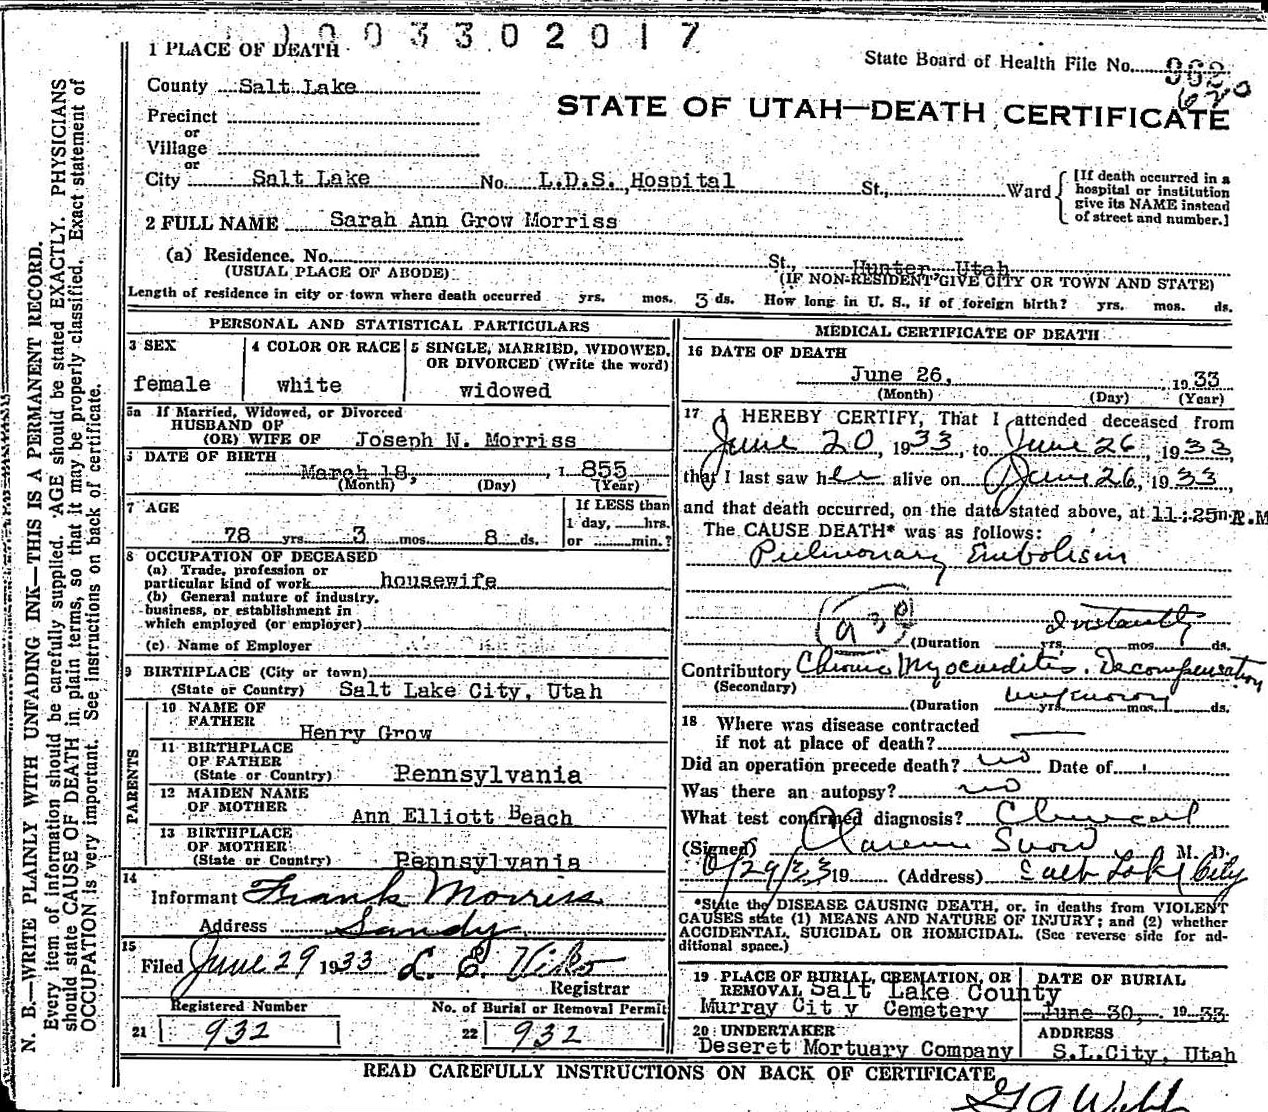 1003302017
1 PLACE OF DEATH
State Board of Health File No. 962
620
County Salt Lake
STATE OF UTAH—DEATH CERTIFICATE
Precinct
or
Village
or
City Salt Lake No. L.D.S. Hospital St., Ward
[If death occurred in a hospital or institution give its NAME instead of street and number.]
2 FULL NAME Sarah Ann Grow Morriss
(a) Residence. No. St., Hunter, Utah
(USUAL PLACE OF ABODE) (IF NON-RESIDENT GIVE CITY OR TOWN AND STATE)
Length of residence in city or town where death occurred yrs. mos. 3 ds. How long in U. S., if of foreign birth? yrs. mos. ds.
PERSONAL AND STATISTICAL PARTICULARS
3 SEX
female
4 COLOR OR RACE
white
5 SINGLE, MARRIED, WIDOWED, OR DIVORCED (Write the word)
widowed
5a If Married, Widowed, or Divorced
HUSBAND OF
(OR) WIFE OF Joseph N. Morriss
6 DATE OF BIRTH
March 18, 1855
(Month) (Day) (Year)
7 AGE
78 yrs. 3 mos. 8 ds.
If LESS than
1 day, hrs.
or min.?
8 OCCUPATION OF DECEASED
(a) Trade, profession or
particular kind of work housewife
(b) General nature of industry,
business, or establishment in
which employed (or employer)
(c) Name of Employer
9 BIRTHPLACE (City or town)
(State or Country) Salt Lake City, Utah
PARENTS
10 NAME OF
FATHER
Henry Grow
11 BIRTHPLACE
OF FATHER
(State or Country) Pennsylvania
12 MAIDEN NAME
OF MOTHER
Ann Elliott Beach
13 BIRTHPLACE
OF MOTHER
(State or Country) Pennsylvania
14
Informant Frank Morriss
Address Sandy
15
Filed June 29 1933 L. E.
Registrar
Registered Number
21 932
No. of Burial or Removal Permit
22 932
MEDICAL CERTIFICATE OF DEATH
16 DATE OF DEATH
June 26, 1933
(Month) (Day) (Year)
17 I HEREBY CERTIFY, That I attended deceased from
June 20, 1933, to June 26, 1933,
that I last saw her alive on June 26, 1933,
and that death occurred, on the date stated above, at 11:25 P.M
The CAUSE DEATH* was as follows:
Pulmonary Embolism
930
Instantly
(Duration yrs. mos. ds.
Contributory Chronic Myocarditis. Decompensation
(Secondary)
unknown
(Duration yrs. mos. ds.
18 Where was disease contracted
if not at place of death?
Did an operation precede death? no Date of
Was there an autopsy? no
What test confirmed diagnosis? Clinical
(Signed) Clarence Snow M. D.
6/29/33 19 (Address) Salt Lake City
*State the DISEASE CAUSING DEATH, or, in deaths from VIOLENT
CAUSES state (1) MEANS AND NATURE OF INJURY; and (2) whether
ACCIDENTAL, SUICIDAL OR HOMICIDAL. (See reverse side for ad-
ditional space.)
19 PLACE OF BURIAL, CREMATION, OR
REMOVAL Salt Lake County
Murray City Cemetery
DATE OF BURIAL
June 30, 1933
20 UNDERTAKER
Deseret Mortuary Company
ADDRESS
S.L.City, Utah
READ CAREFULLY INSTRUCTIONS ON BACK OF CERTIFICATE
N. B.—WRITE PLAINLY WITH UNFADING INK—THIS IS A PERMANENT RECORD.
Every item of information should be carefully supplied. AGE should be stated EXACTLY. PHYSICIANS
should state CAUSE OF DEATH in plain terms, so that it may be properly classified. Exact statement of
OCCUPATION is very important. See instructions on back of certificate.